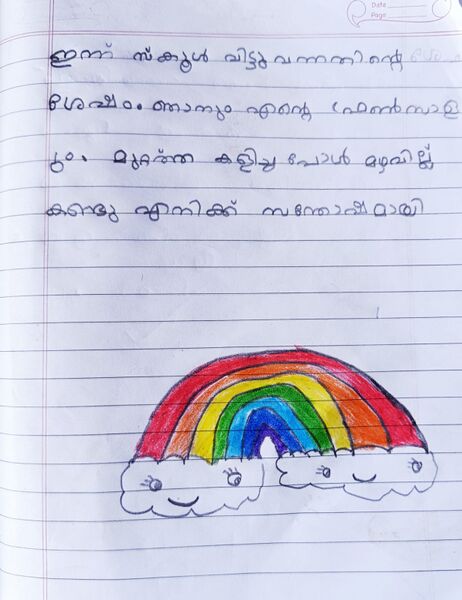 Date
Page
ഇന്ന് സ്കൂൾ വിട്ടു വന്നതിന്റെ
ശേഷം. ഞാനും എന്റെ ഫ്രണ്‍സാള
ും. മുറ്റത്ത കളിച്ച പോൾ മഴവില്ല്
കണ്ടു എനിക്ക് സന്തോഷമായി